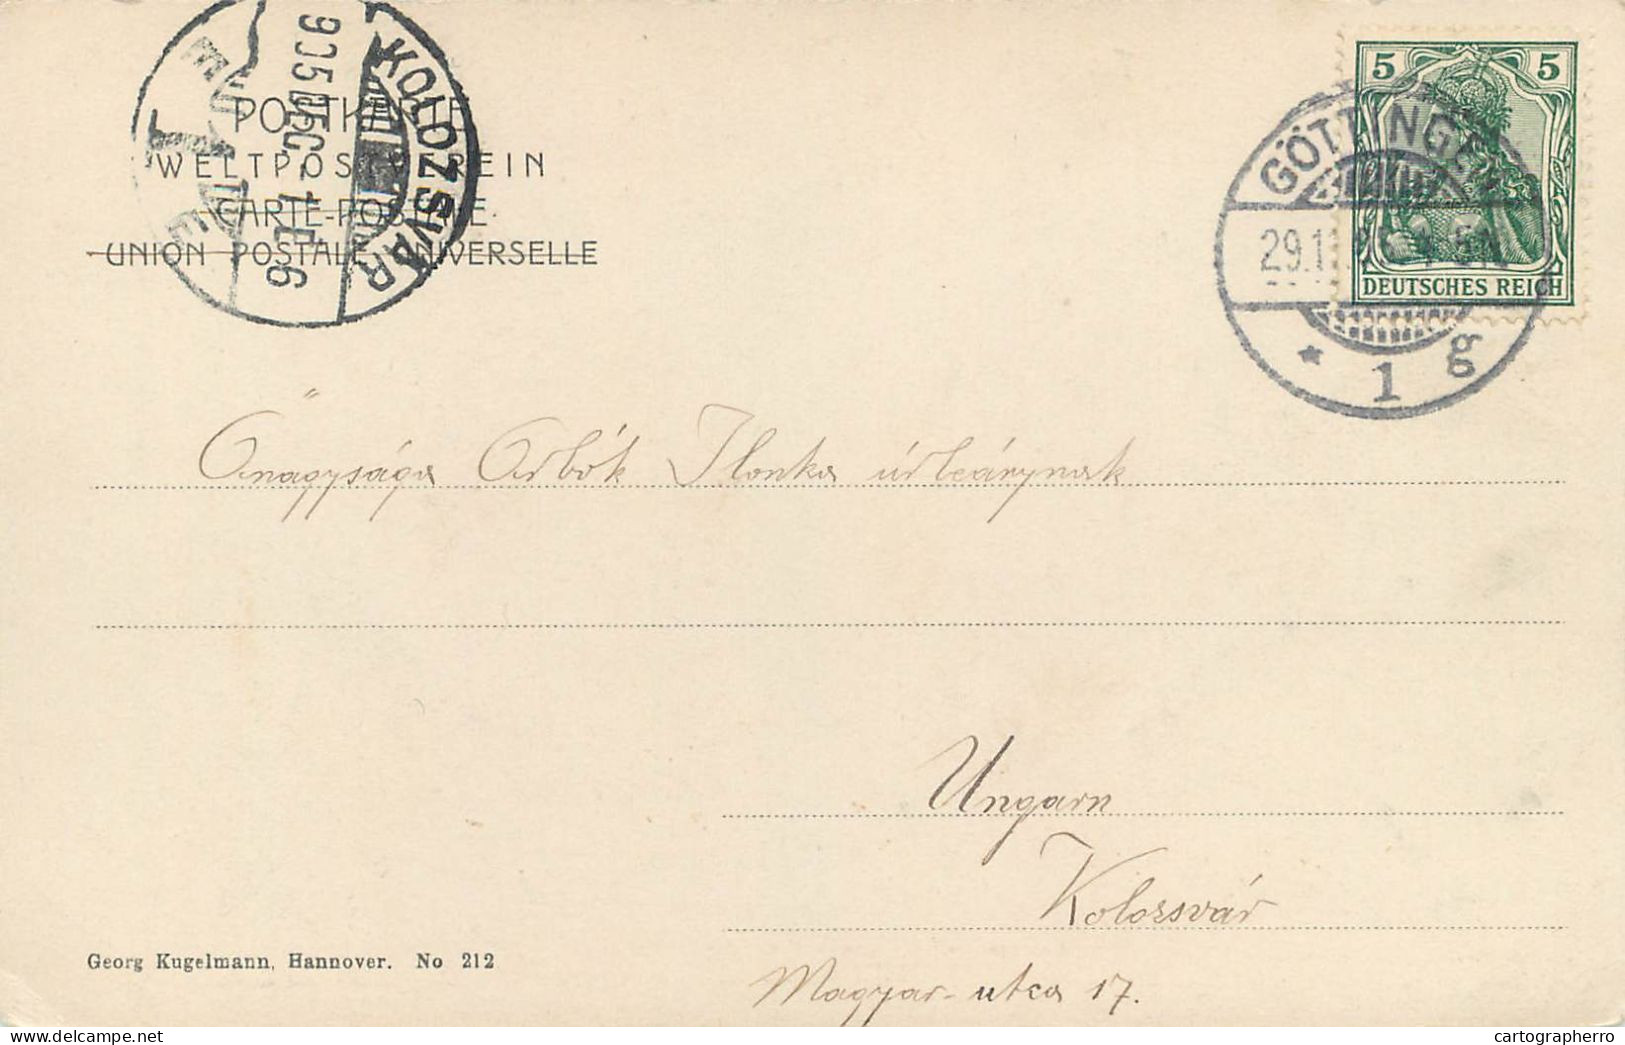 POSTKARTE
WELTPOSTVEREIN
CARTE-POSTALE
UNION POSTALE UNIVERSELLE
KOLOZSVÁR
905 DEC. 1. E 6
5 5
DEUTSCHES REICH
GÖTTINGEN
29.11.
* 1 g
Őnagysága Orbók Ilonka úrleánynak
Ungarn
Kolozsvár
Magyar-utca 17.
Georg Kugelmann, Hannover. No 212
cartographerro